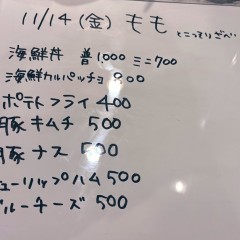 11/14(金) もも
とこってりざべい
海鮮丼 普1,000 ミニ700
海鮮カルパッチョ 800
ポテトフライ 400
豚キムチ 500
豚ナス 500
ューリップハム 500
ブルーチーズ 500